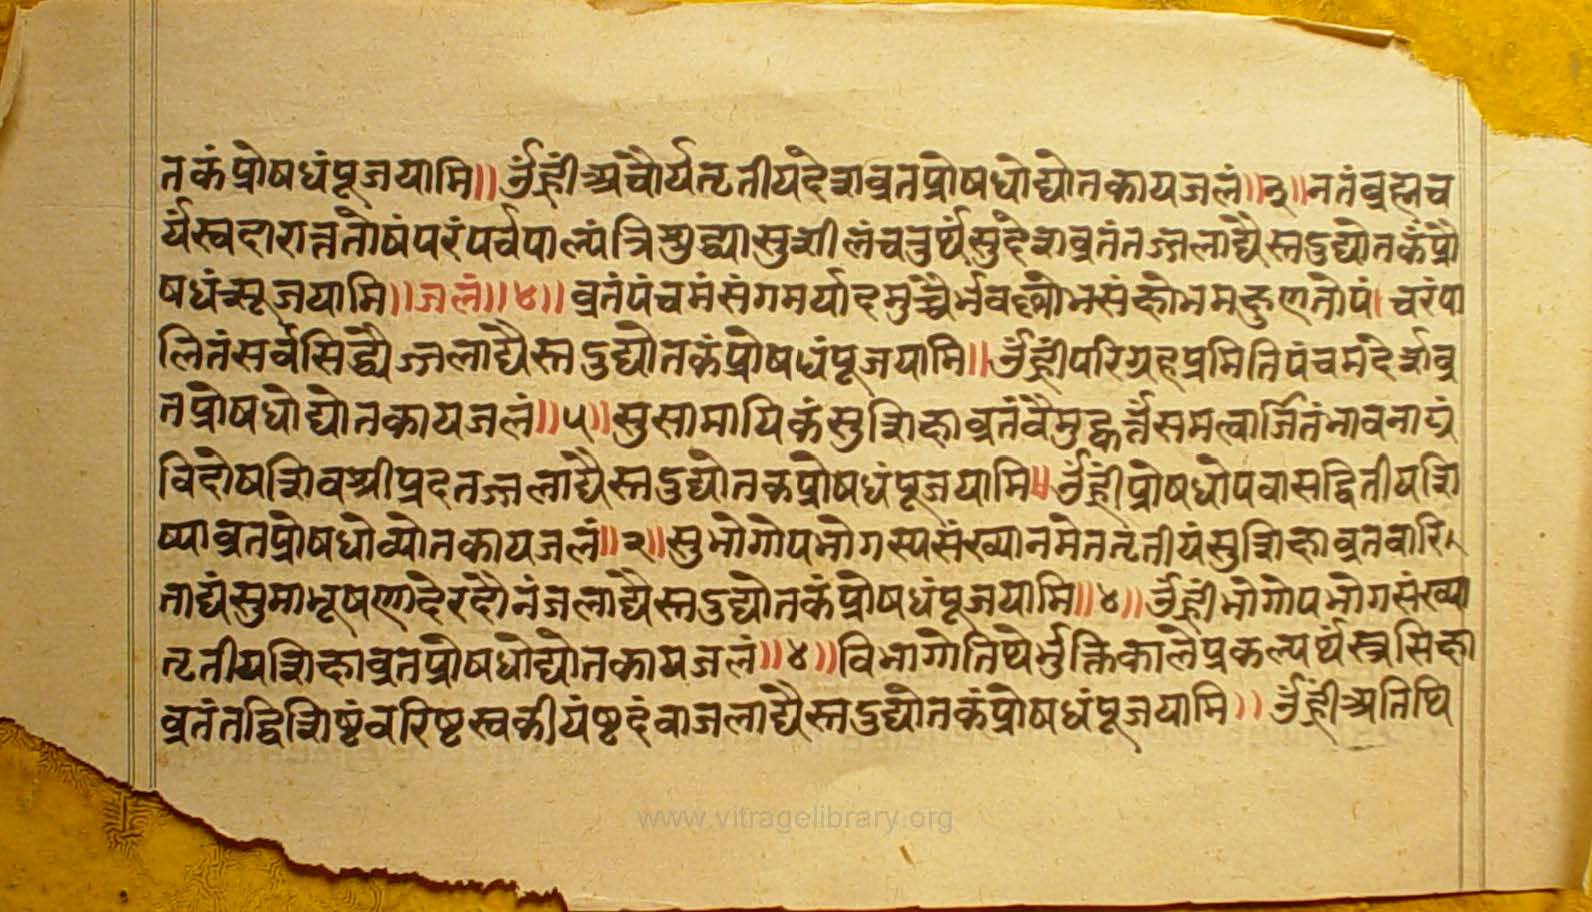 तकंप्रोषधंपूजयामि॥ ॐह्रींअचौर्यतृतीयदेशव्रतप्रोषधोद्योतकायजलं॥३॥नतंब्रह्मच
र्यंस्वदारान्नतोषंपरंपर्वपाल्यंत्रिशुद्ध्यासुशीलंचतुर्थंसुदेशव्रतंतज्जलाद्यैस्तदुद्योतकंप्रो
षधंपूजयामि॥जलं॥४॥व्रतंपंचमंसंगमर्यादमुच्चै चरंपा
लितंसर्वसिद्ध्यैज्जलाद्यैस्तदुद्योतकंप्रोषधंपूजयामि॥ॐह्रींपरिग्रहप्रमितिपंचमंदेशव्र
तप्रोषधोद्योतकायजलं॥५॥सुसामायिकंसुशिक्षाव्रतंवै
विदोषशिवश्रीप्रदतज्जलाद्यैस्तदुद्योतकप्रोषधंपूजयामि॥ॐह्रींप्रोषधोपवासद्वितीयशि
ष्याव्रतप्रोषधोद्योतकायजलं॥२॥सुभोगोपभोगस्यसंख्यानमेततृतीयंसुशिक्षाव्रतवारि
जलाद्यैस्तदुद्योतकंप्रोषधंपूजयामि॥४॥ॐह्रींभोगोपभोगसंख्या
तृतीयशिक्षाव्रतप्रोषधोद्योतकायजलं॥४॥विभागोतिथेर्भुक्तिकाले
व्रतंतद्विशिष्टंवरिष्टस्वकीयंष्टदंवाजलाद्यैस्तदुद्योतकंप्रोषधंपूजयामि॥ॐह्रींअतिथि
www.vitragelibrary.org